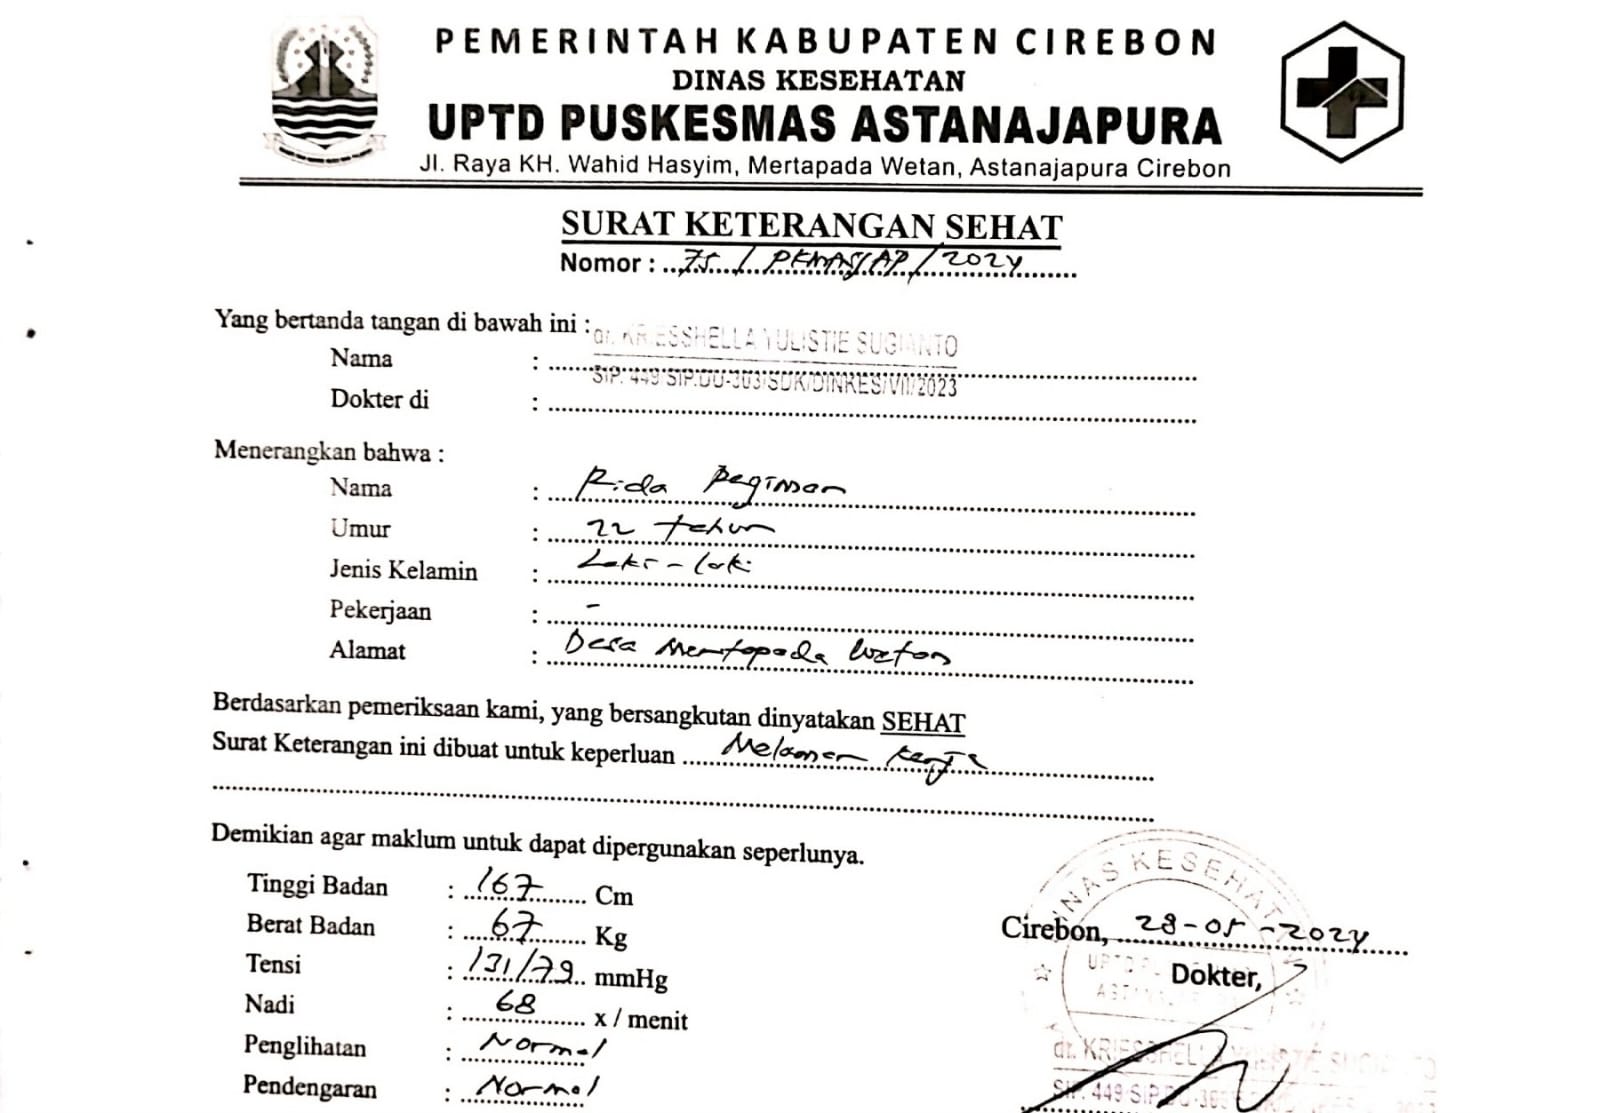 PEMERINTAH KABUPATEN CIREBON
DINAS KESEHATAN
UPTD PUSKESMAS ASTANAJAPURA
Jl. Raya KH. Wahid Hasyim, Mertapada Wetan, Astanajapura Cirebon
SURAT KETERANGAN SEHAT
Nomor : 75 / PKMASJAP / 2024
Yang bertanda tangan di bawah ini :
dr. KRIESSHELLA YULISTIE SUGIANTO
Nama :
SIP. 449/SIP.DU-363/SDK/DINKES/VII/2023
Dokter di :
Menerangkan bahwa :
Nama : Rida
Umur : 22 tahun
Jenis Kelamin : Laki - laki
Pekerjaan : -
Alamat : Desa Mertapada Wetan
Berdasarkan pemeriksaan kami, yang bersangkutan dinyatakan SEHAT
Surat Keterangan ini dibuat untuk keperluan Melamar Kerja
Demikian agar maklum untuk dapat dipergunakan seperlunya.
Tinggi Badan : 167 Cm
Berat Badan : 67 Kg
Tensi : 131/79 mmHg
Nadi : 68 x / menit
Penglihatan : Normal
Pendengaran : Normal
DINAS KESEHATAN
Cirebon, 28-05-2024
Dokter,
dr. KRIESSHELLA YULISTIE SUGIANTO